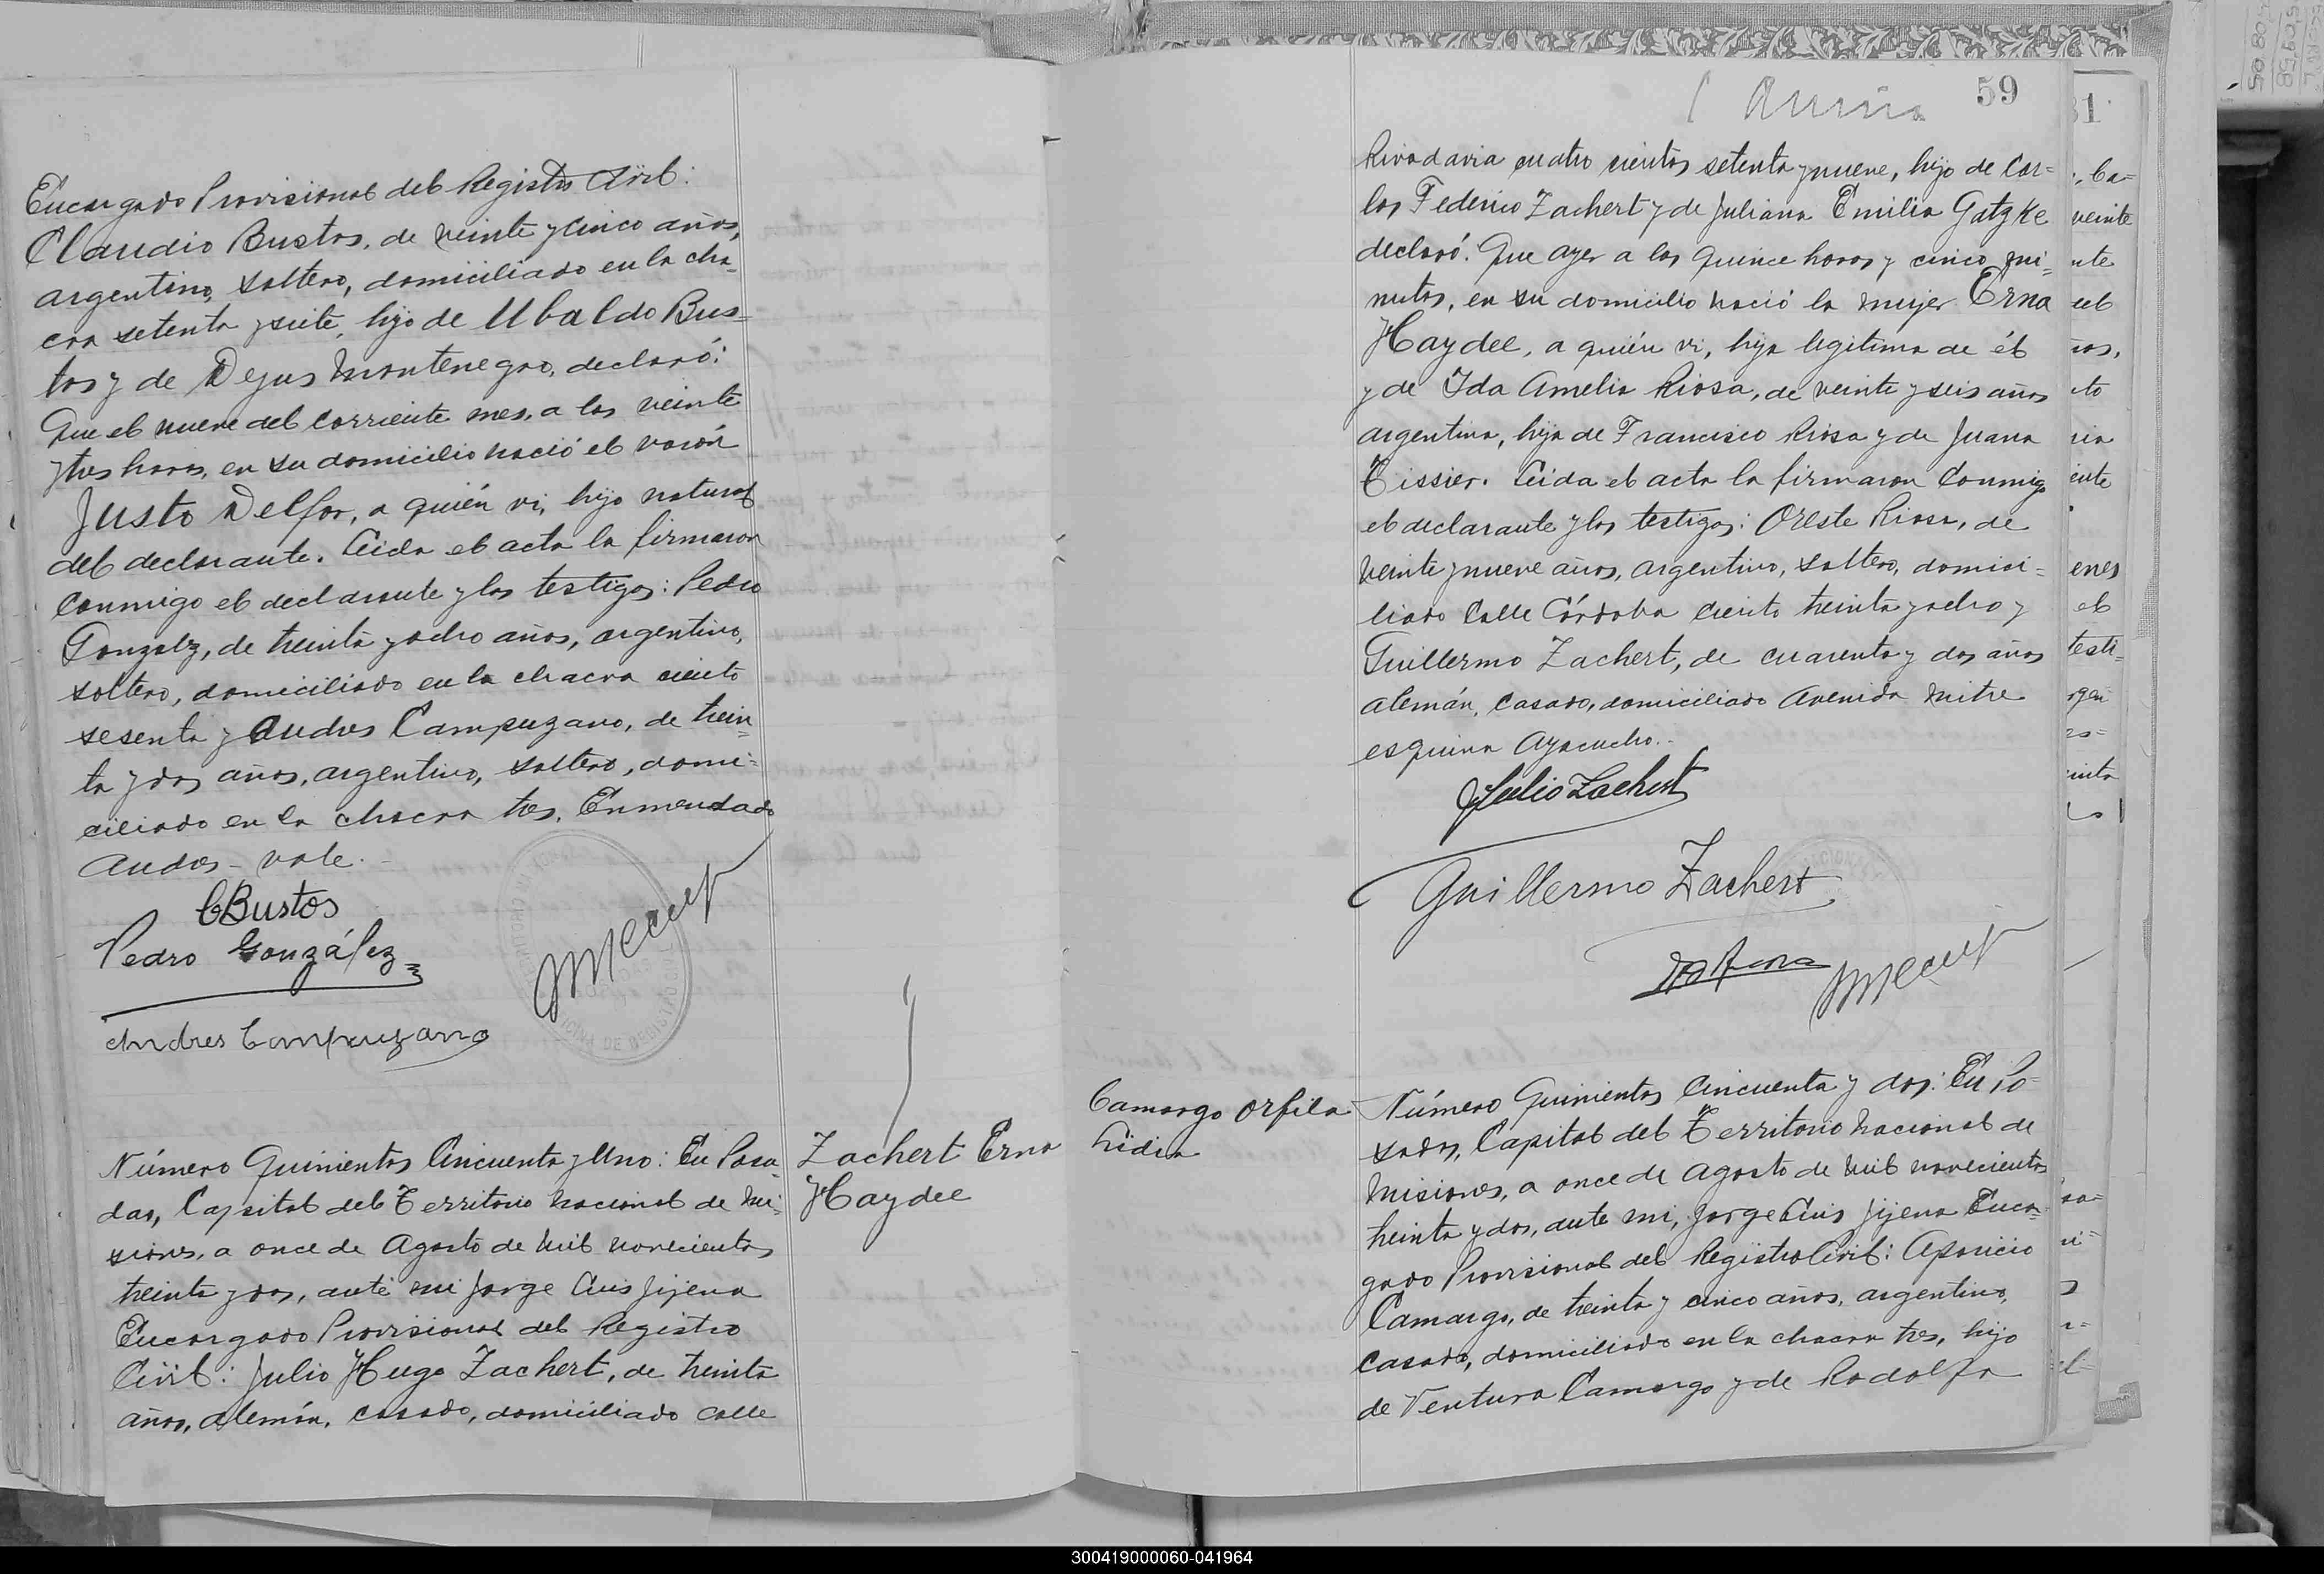 Encargado Provisional del Registro Civil:
Claudio Bustos, de veinte y cinco años,
argentino, soltero, domiciliado en la cha=
cra setenta y siete, hijo de Ubaldo Bus=
tos y de Dejus Montenegro, declaró:
Que el nueve del corriente mes, a las veinte
y tres horas, en su domicilio nació el varón
Justo Delfor, a quién vi, hijo natural
del declarante. Leida el acta la firmaron
conmigo el declarante y los testigos: Pedro
Gonzalz, de treinta y ocho años, argentino,
soltero, domiciliado en la chacra ciento
sesenta y Andres Campuzano, de trein=
ta y dos años, argentino, soltero, domi=
ciliado en la chacra tres. Enmendado
Andres - vale.-
CBustos
Pedro González
Andres Campuzano
Número Quinientos Cincuenta y Uno: En Posa=
das, Capital del Territorio Nacional de Mi=
siones, a once de Agosto de Mil novecientos
treinta y dos, ante mi Jorge Luis Jijena
Encargado Provisional del Registro
Civil: Julio Hugo Zachert, de treinta
años, alemán, casado, domiciliado calle
Zachert Erna
Haydee
59
Rivadavia cuatro cientos setenta y nueve, hijo de Car=
los Federico Zachert y de Juliana Emilia Gatzke
declaró: Que ayer a las quince horas y cinco mi=
nutos, en su domicilio nació la mujer Erna
Haydee, a quién vi, hija legitima de él
y de Ida Amelia Riosa, de veinte y seis años
argentina, hija de Francisco Riosa y de Juana
Tissier. Leida el acta la firmaron conmigo
el declarante y los testigos: Oreste Riosa, de
veinte y nueve años, argentino, soltero, domici=
liado Calle Córdoba ciento treinta y ocho y
Guillermo Zachert, de cuarenta y dos años
alemán, casado, domiciliado Avenida Mitre
esquina Ayacucho.-
Julio Zachert
Guillermo Zachert
Camargo Orfila
Lidia
Número Quinientos Cincuenta y dos: En Po=
sadas, Capital del Territorio Nacional de
Misiones, a once de Agosto de Mil novecientos
treinta y dos, ante mi, Jorge Luis Jijena Encar=
gado Provisional del Registro Civil: Aparicio
Camargo, de treinta y cinco años, argentino,
casado, domiciliado en la chacra tres, hijo
de Ventura Camargo y de Rodolfa
300419000060-041964